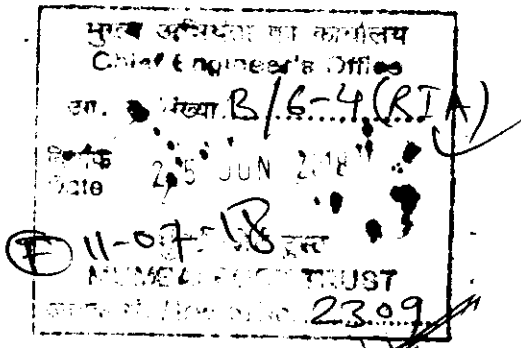 मुख्य अभियंता का कार्यालय
Chief Engineer's Office
संख्या B/6-4 (RIA)
दिनांक
Date 25 JUN 2018
F 11-07-18
MUMBAI PORT TRUST
2309